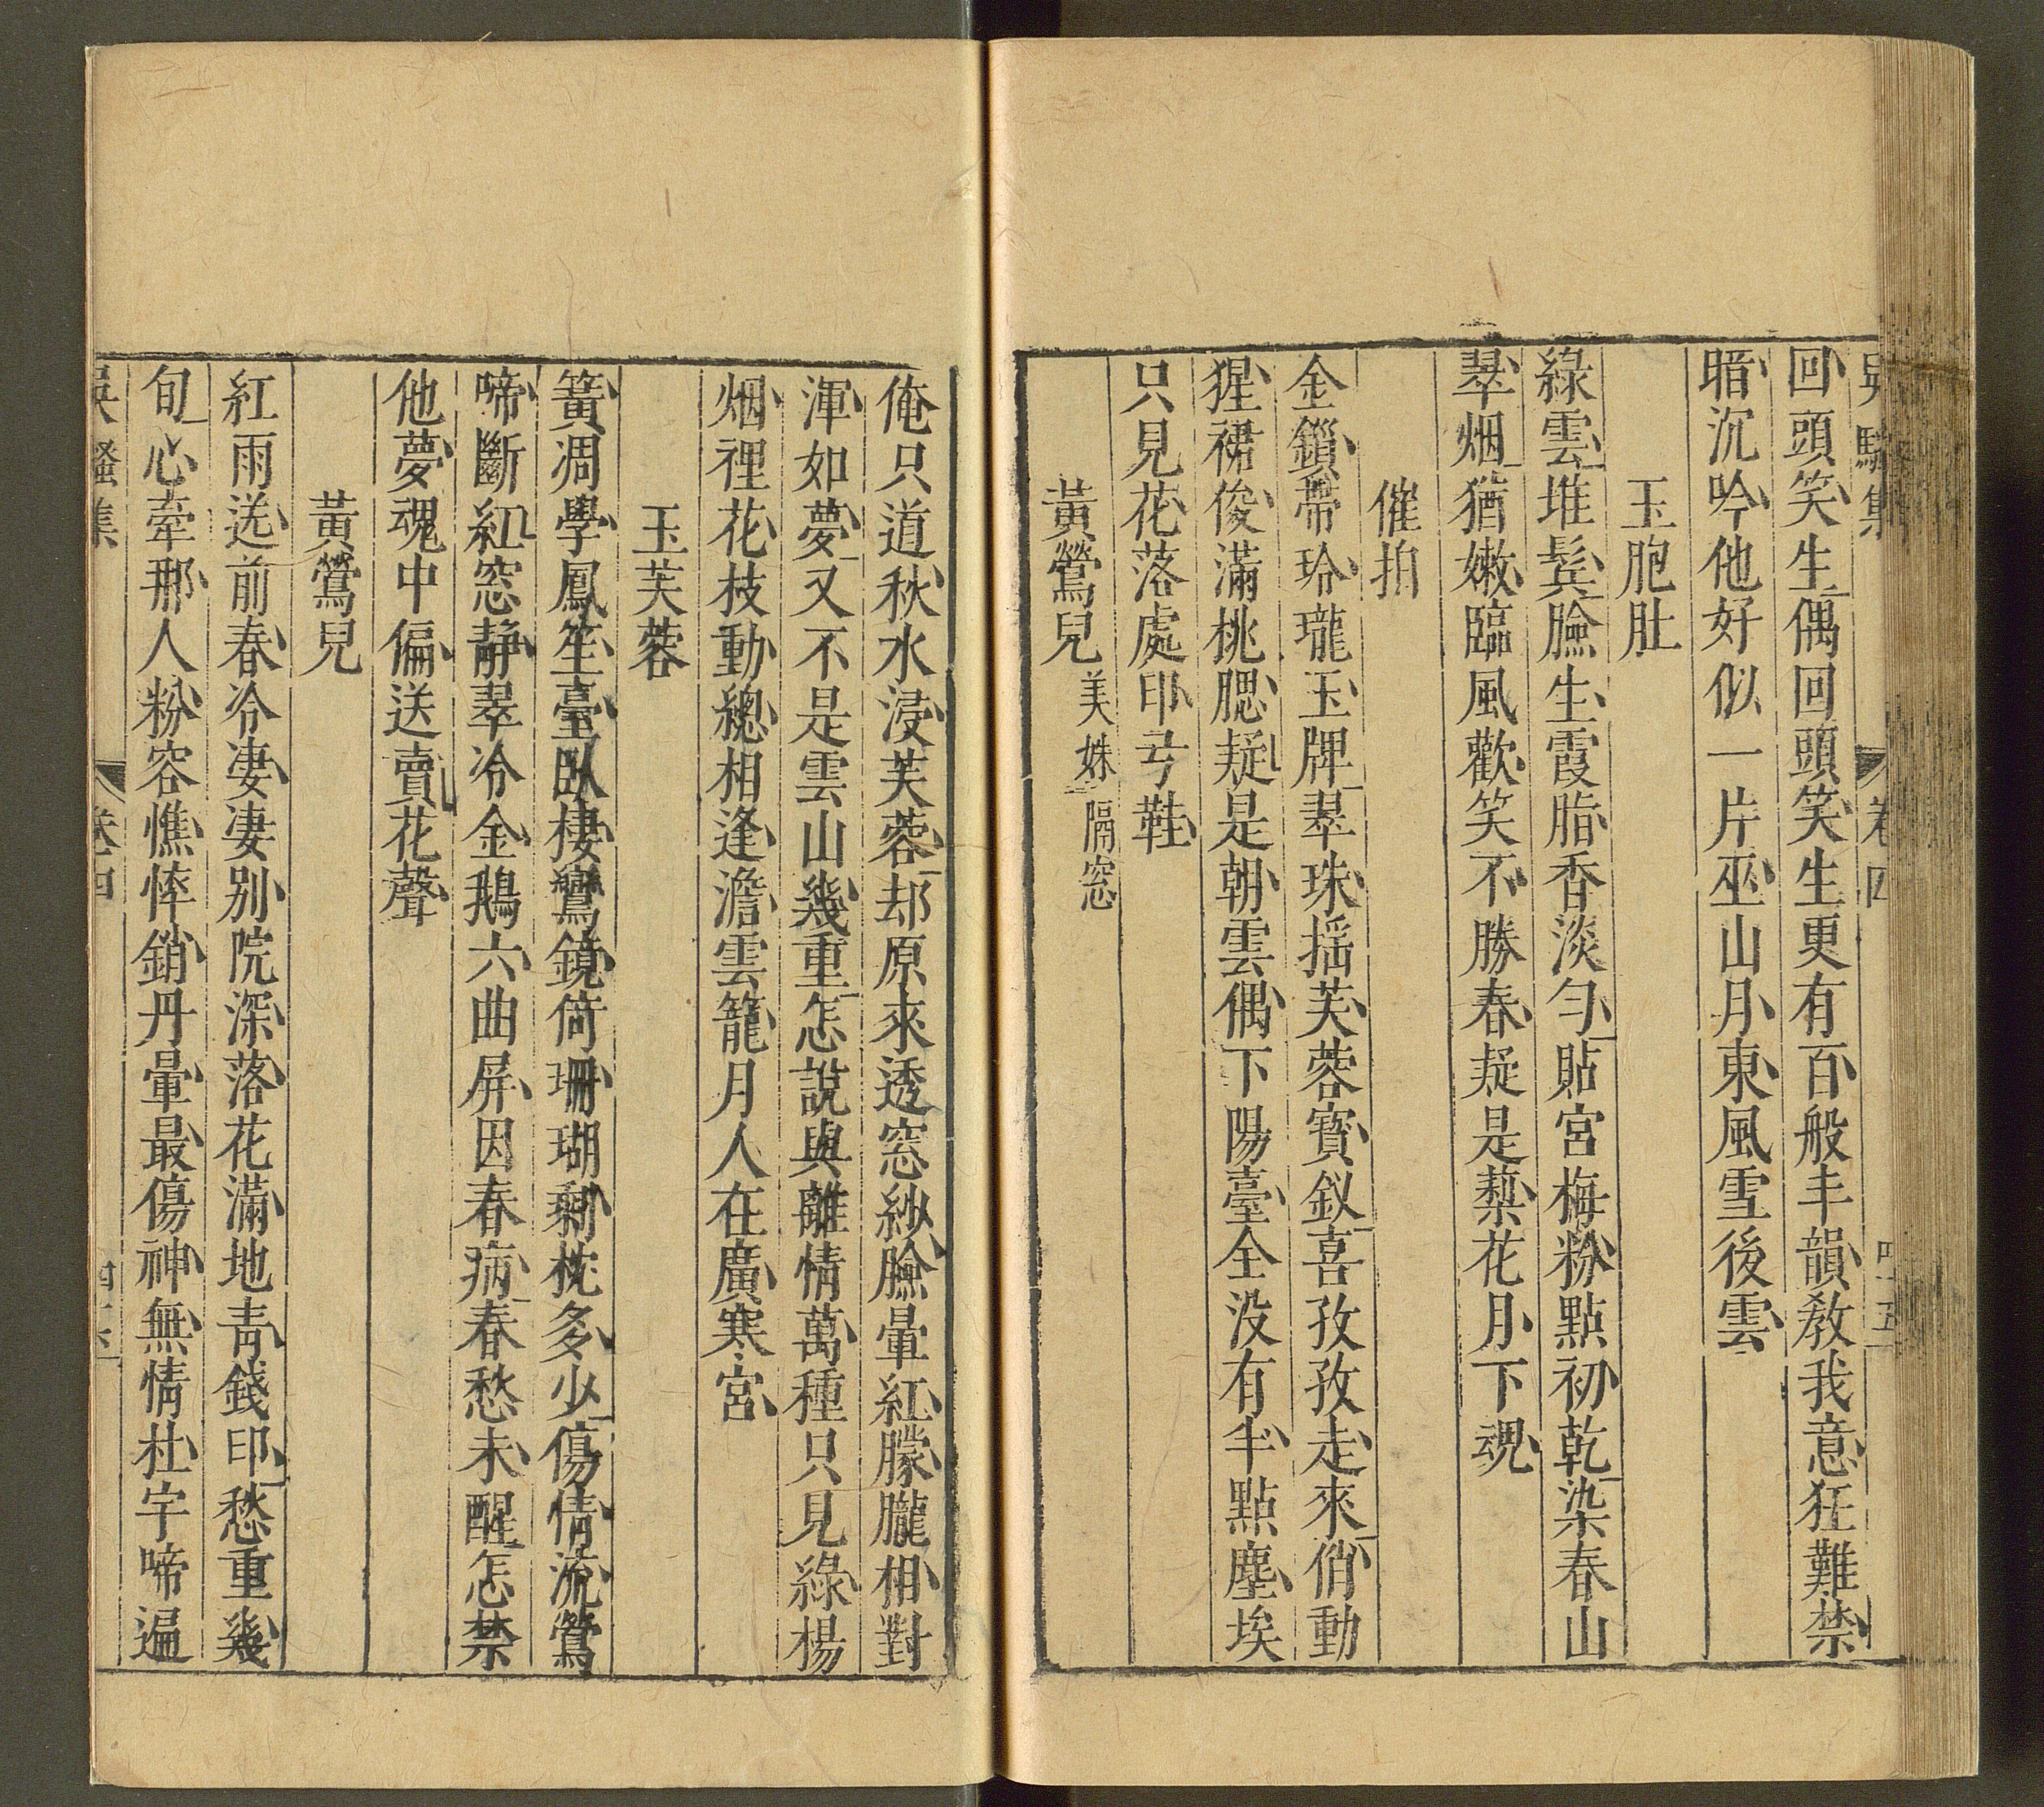 吳騷集 卷四 四十五
回頭笑生偶回頭笑生更有百般丰韻教我意狂難禁
暗沉吟他好似一片巫山月東風雪後雲
玉胞肚
綠雲堆鬂臉生霞脂香淡勻貼宮梅粉點初乾染春山
翠烟猶嫩臨風歡笑不勝春疑是蔾花月下魂
催拍
金鎖帶玲瓏玉牌翠珠搖芙蓉寶釵喜孜孜走來俏動
猩裙俊滿桃腮疑是朝雲偶下陽臺全没有半點塵埃
只見花落處印弓鞋
黃鶯兒 美姝隔窓
俺只道秋水浸芙蓉却原來透窓紗臉暈紅朦朧相對
渾如夢又不是雲山幾重怎說與離情萬種只見綠楊
烟裡花枝動緫相逢澹雲籠月人在廣寒宮
玉芙蓉
簧凋學鳳笙臺臥棲鸞鏡倚珊瑚剩枕多少傷情流鶯
啼斷紅窓靜翠冷金鵝六曲屏因春病春愁未醒怎禁
他夢魂中偏送賣花聲
黃鶯兒
紅雨送前春冷凄凄别院深落花滿地青錢印愁重幾
旬心牽那人粉容憔悴銷丹暈最傷神無情杜宇啼遍
吳騷集 卷四 四十六